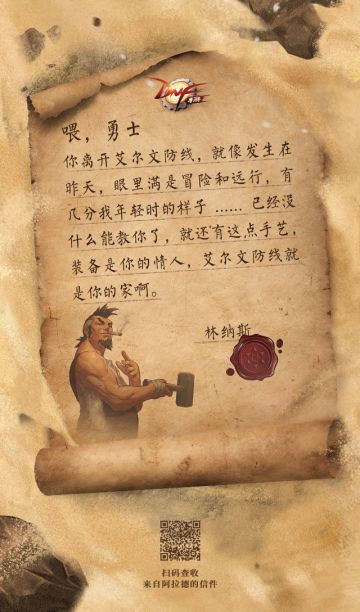 DNF
手游
喂，勇士
你离开艾尔文防线，就像发生在
昨天，眼里满是冒险和远行，有
几分我年轻时的样子 …… 已经没
什么能教你了，就还有这点手艺，
装备是你的情人，艾尔文防线就
是你的家啊。
林纳斯
扫码查收
来自阿拉德的信件